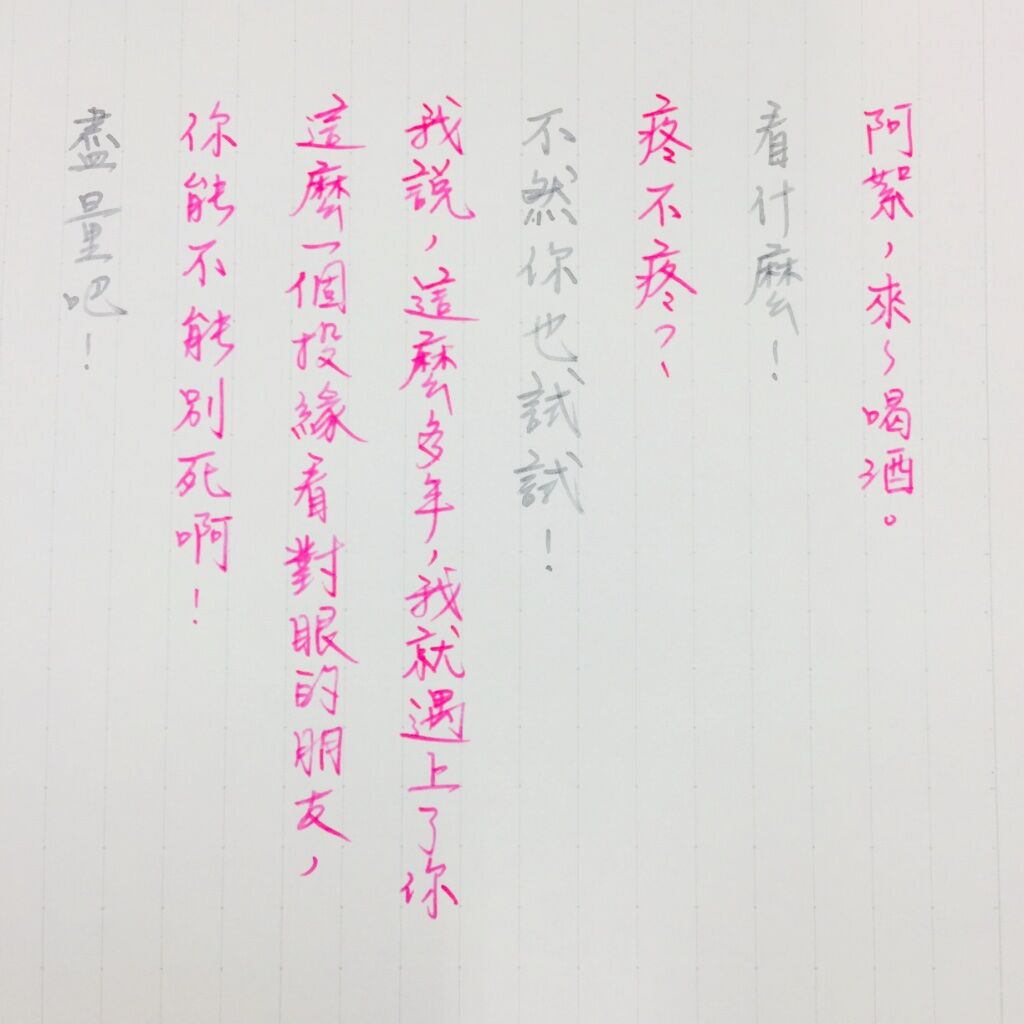 阿絮，來～喝酒。
看什麼！
疼不疼？
不然你也試試！
我說，這麼多年，我就遇上了你
這麼一個投緣看對眼的朋友，
你能不能別死啊！
盡量吧！